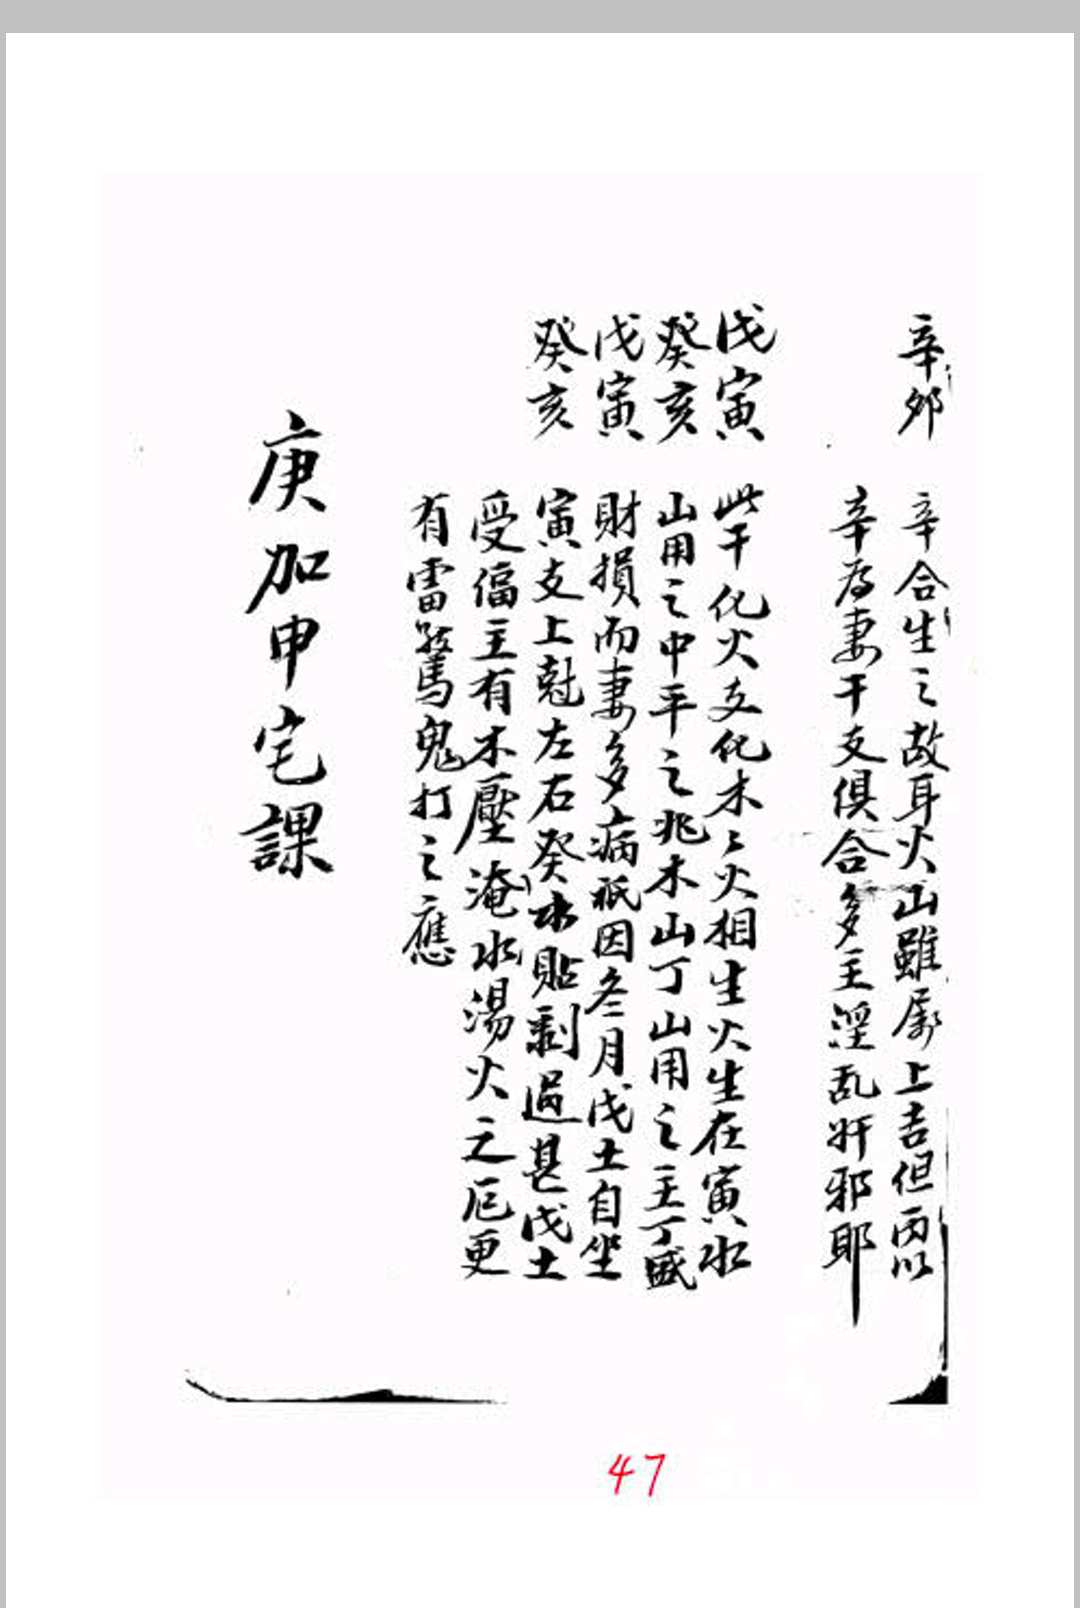 辛卯
辛合生之故耳火山雖屬上吉但丙以
辛為妻干支俱合多主淫乱奸邪耶
戊寅
癸亥
戊寅
癸亥
此干化火支化木々火相生火生在寅水
山用之中平之兆木山丁山用之主丁盛
財損而妻多病祇因冬月戊土自坐
寅支上尅左右癸水貼剥過甚戊土
受傷主有木壓淹水湯火之厄更
有雷驚鬼打之應
庚加申宅課
47